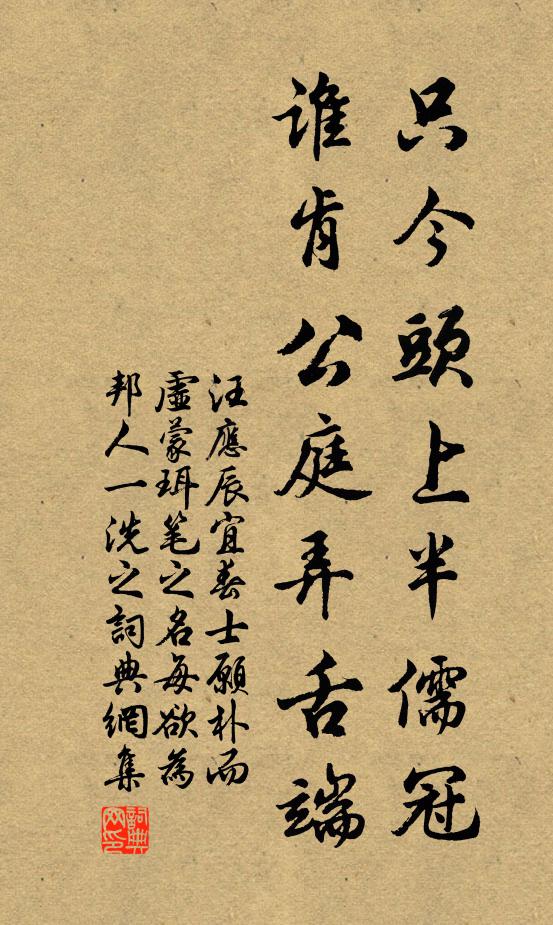 只今頭上半儒冠
誰肯公庭弄舌端
汪應辰宜春士願朴而
虛蒙珥笔之名每欲為
邦人一洗之詞典網集
詞典
网印